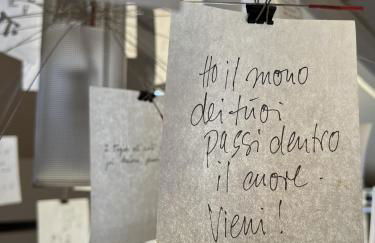 Ho il suono
dei tuoi
passi dentro
il cuore.
Vieni!